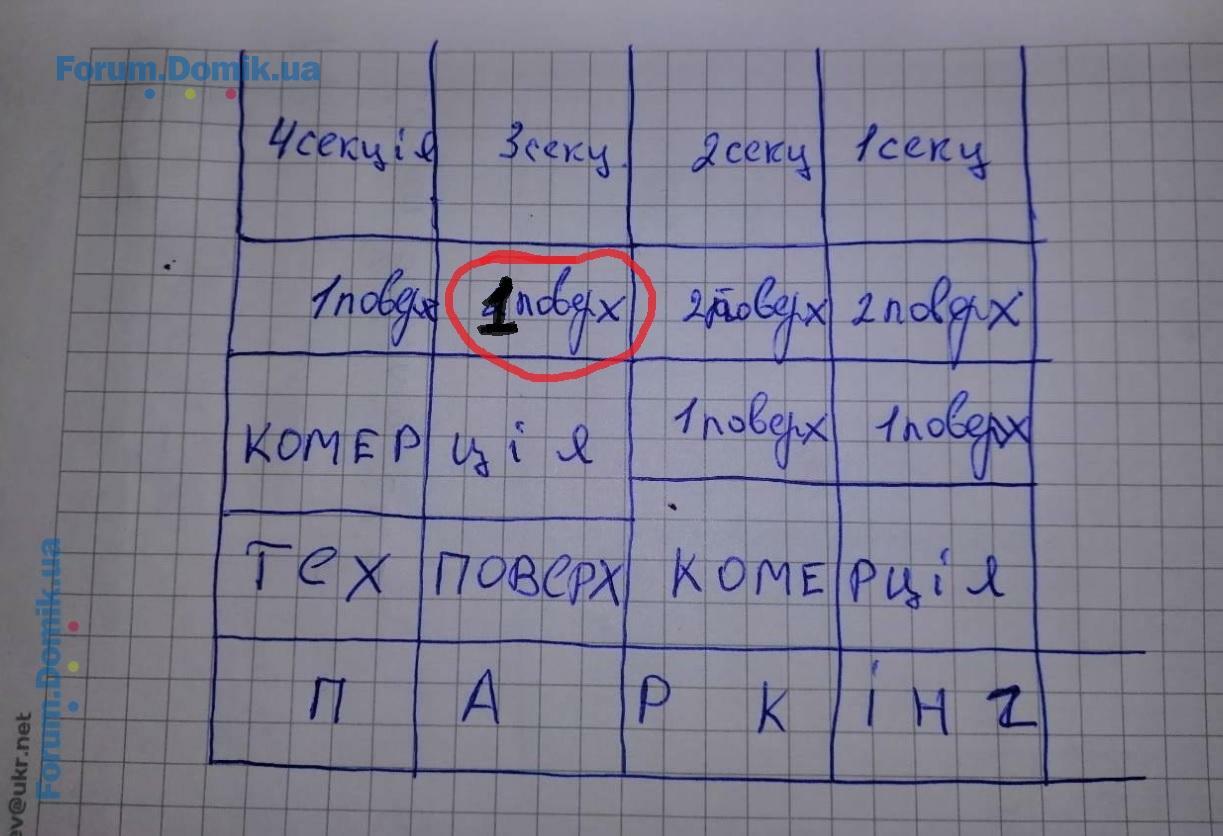 Forum.Domik.ua
4секція 3секц. 2секц 1секц
1поверх 1поверх 2поверх 2поверх
1поверх 1поверх
КОМЕРЦІЯ
Тех ПОВерХ КОМЕРЦІЯ
ПАРКІНГ
Forum.Domik.ua
ev@ukr.net